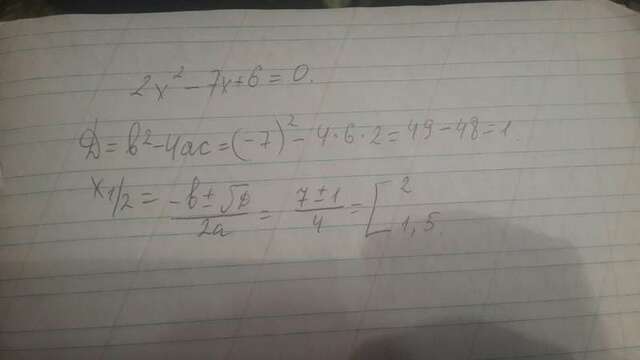 2x² - 7x + 6 = 0.
D = b² - 4ac = (-7)² - 4·6·2 = 49 - 48 = 1.
x1/2 = (-b ± √D)/2a = (7 ± 1)/4 = [2
1,5.